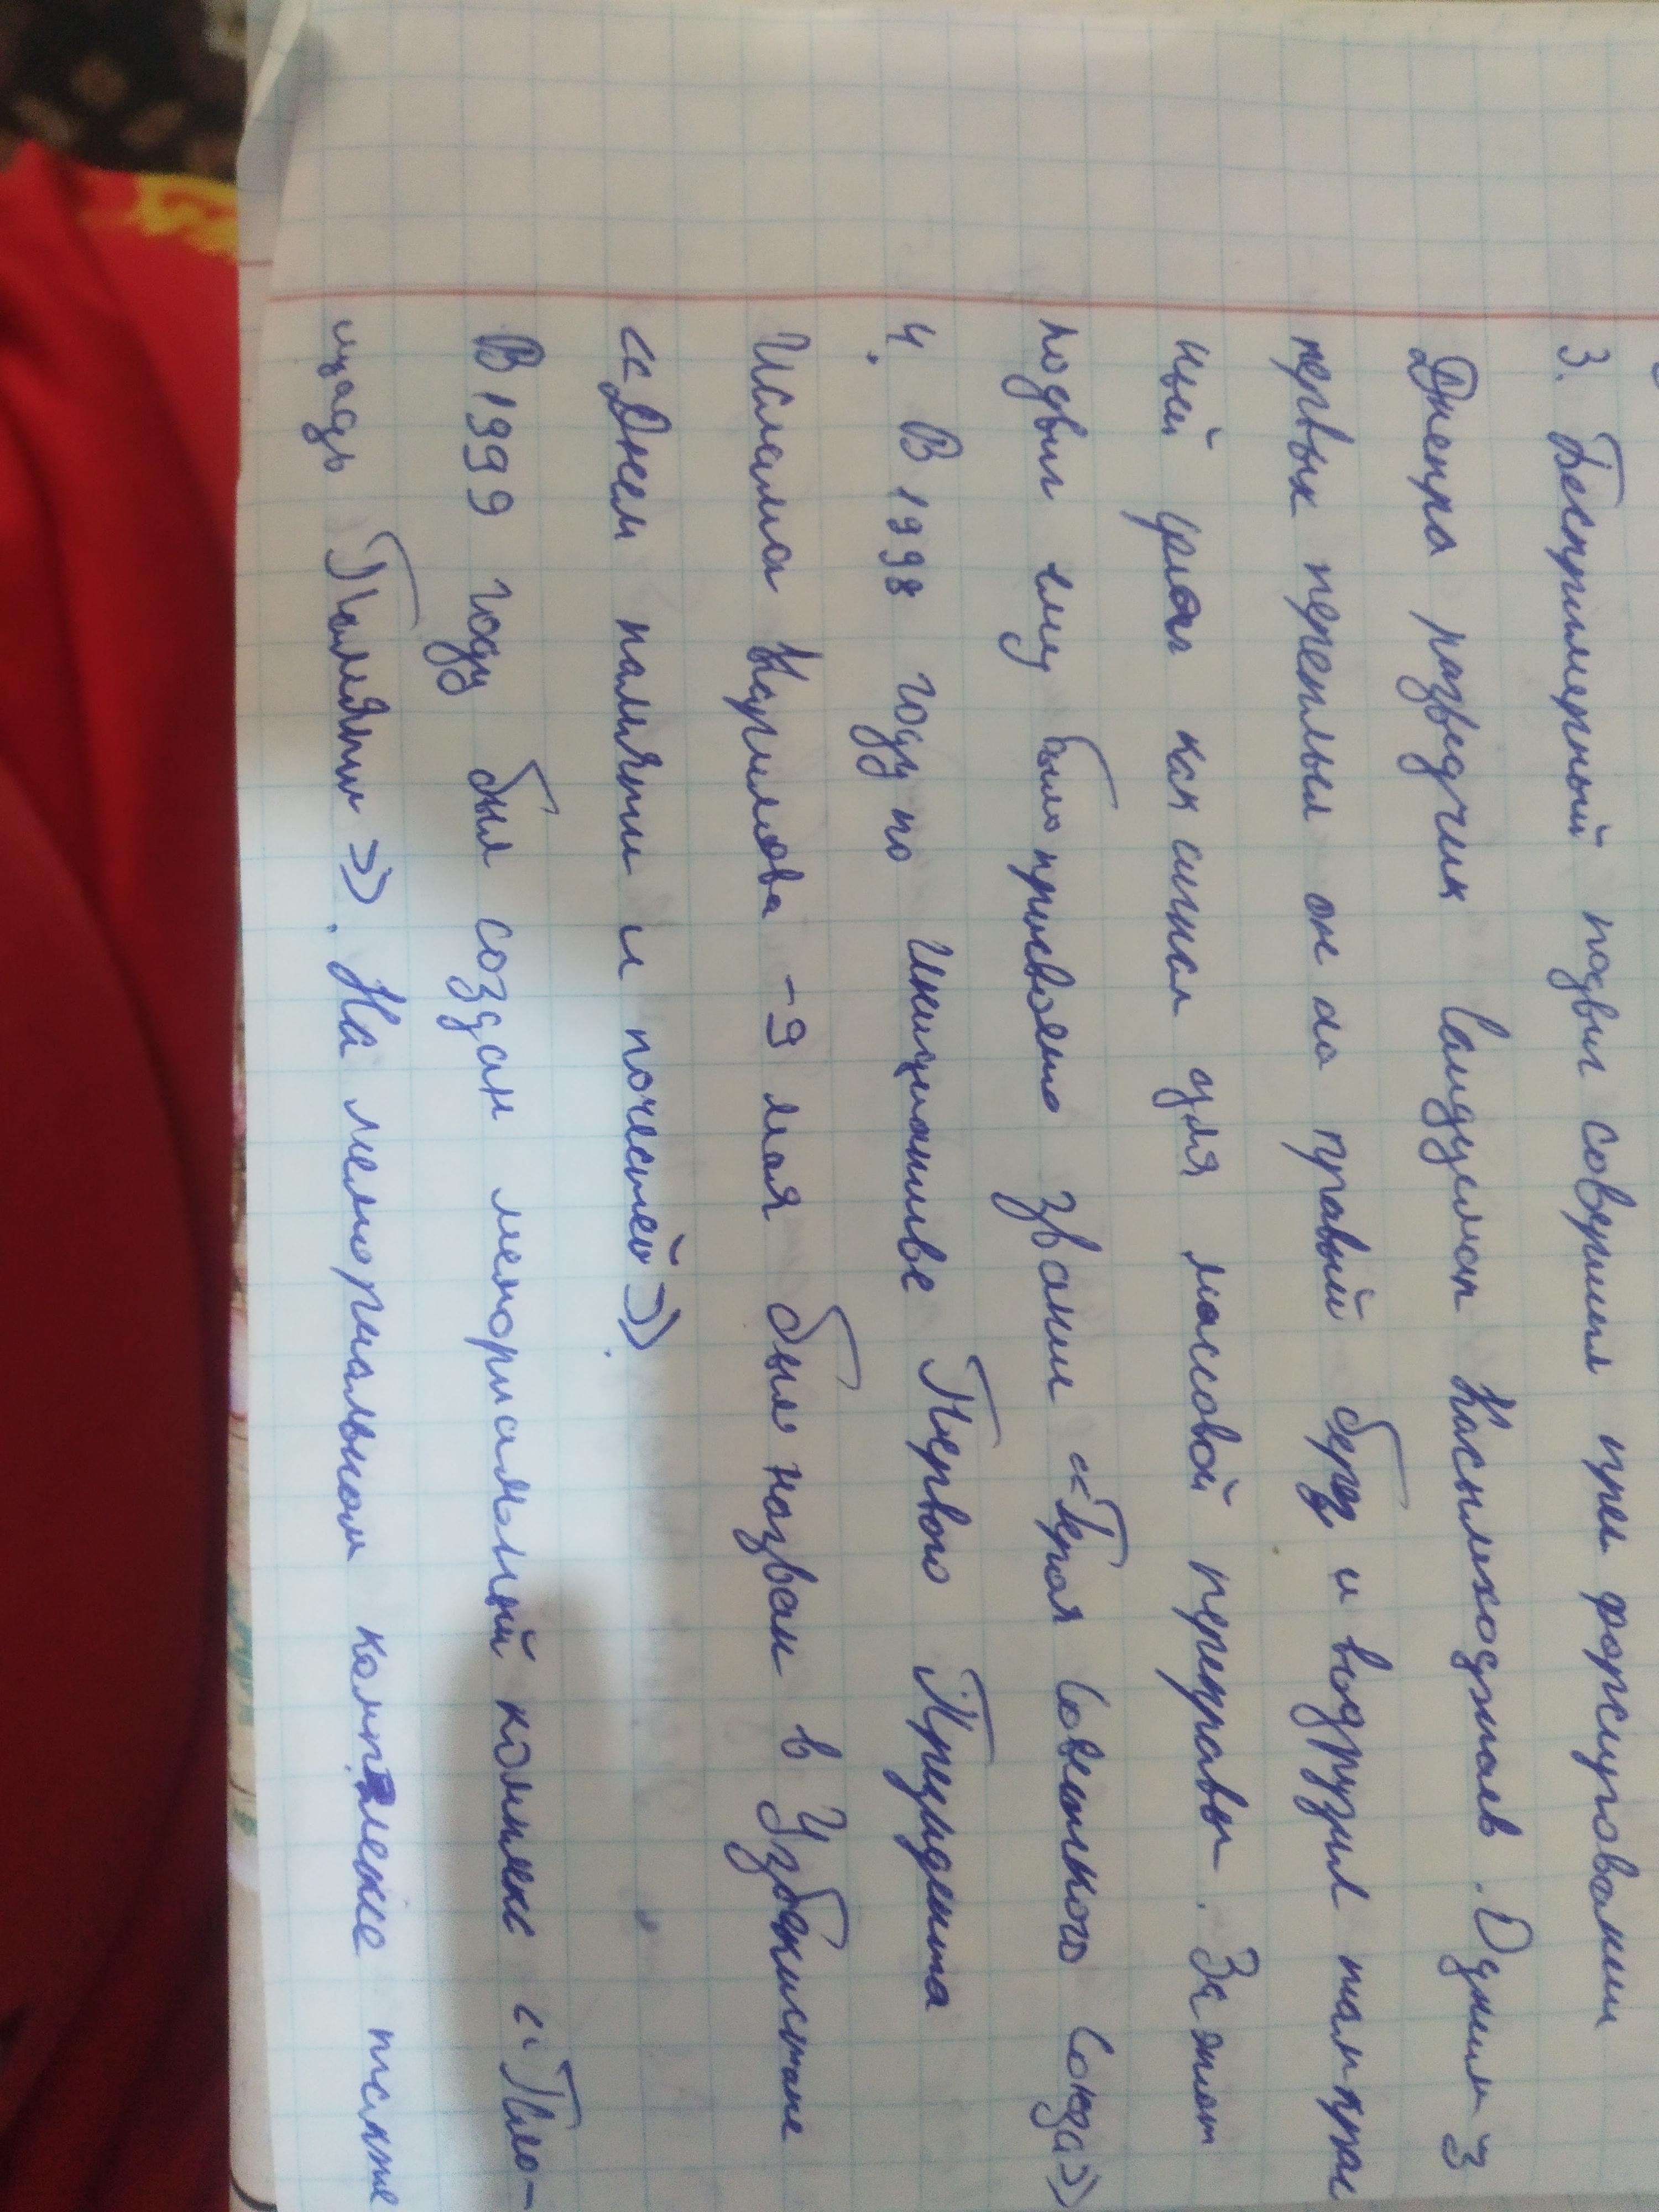 3. Беспримерный подвиг совершил при форсировании
Днепра разведчик Саидусман Касымходжаев. Одним з
первых переплыл он на правый берег и водрузил там крас
ный флаг как сигнал для массовой переправы. За этот
подвиг ему было присвоено звании «Героя Советского Союза»
4. В 1998 году по Инициативе Первого Президента
Ислама Каримова - 9 мая был назван в Узбекистане
«Днем памяти и почестей».
В 1999 году был создан мемориальный комплекс «Пло-
щадь Памяти». На мемориальном комплексе также